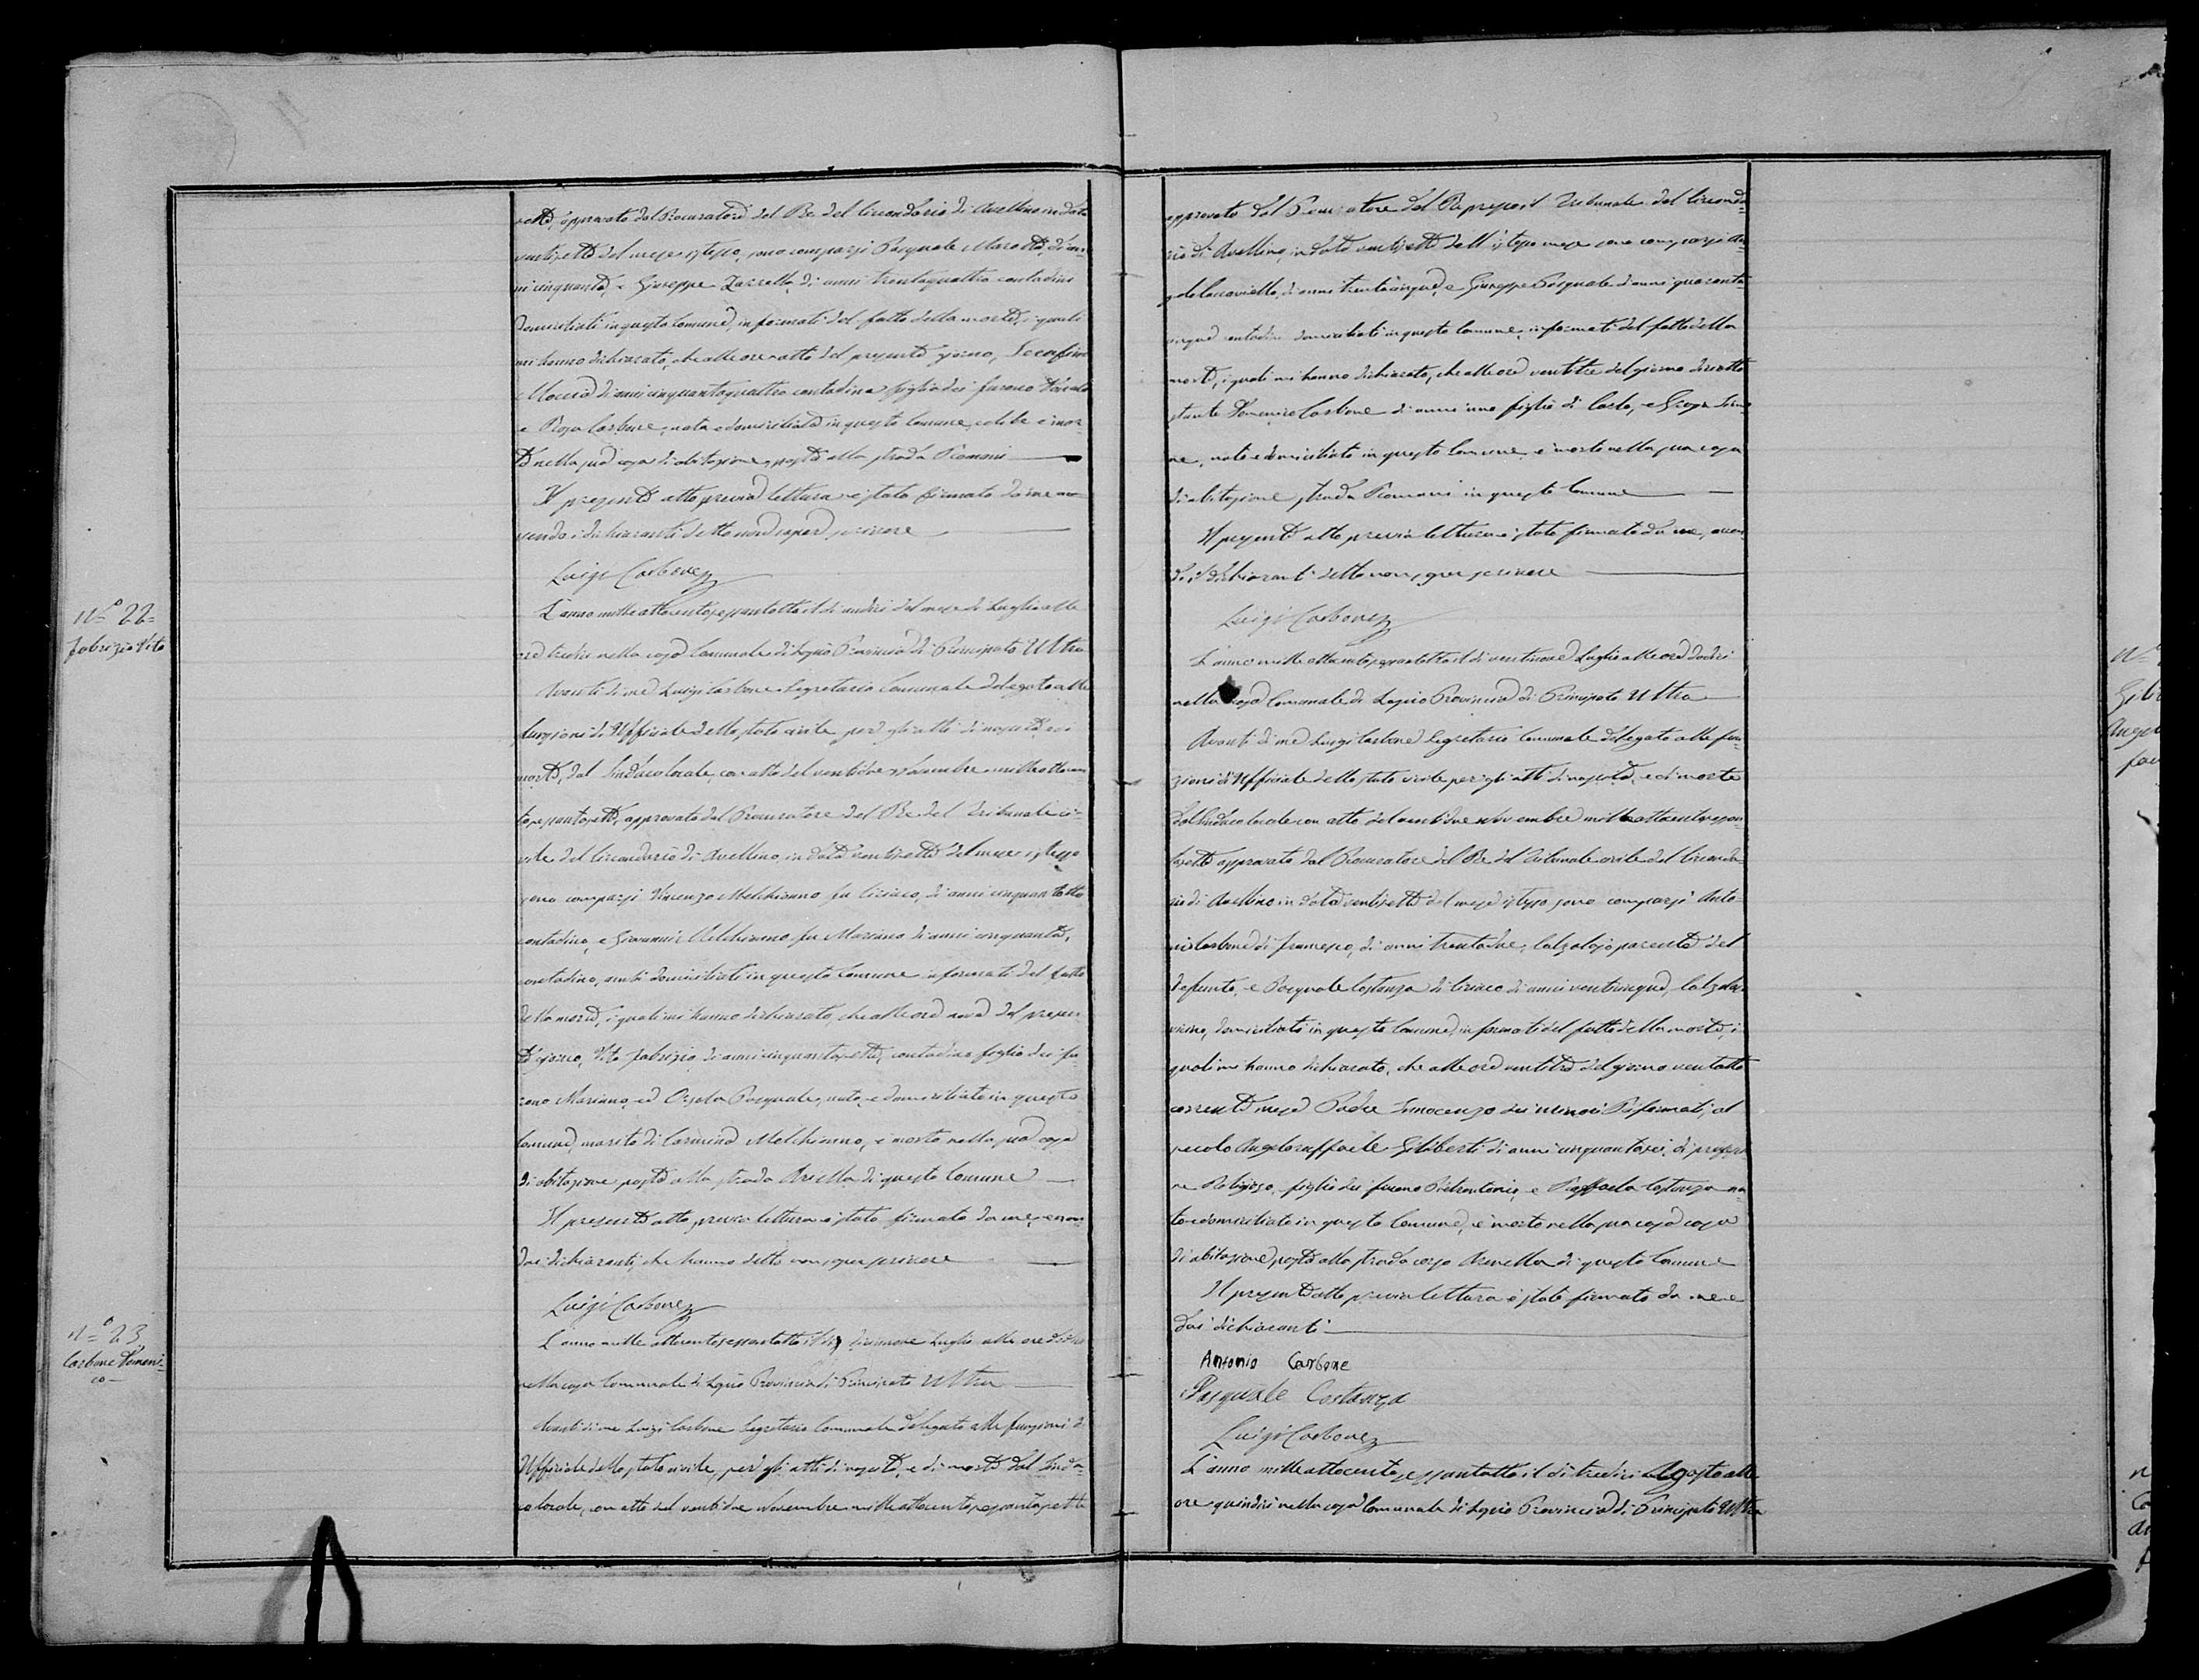 sette, approvato dal Procuratore del Re del Circondario di Avellino in data
ventisette del mese istesso, sono comparsi Pasquale Marotta, di an-
ni cinquanta, e Giuseppe Zarrella, di anni trentaquattro contadini
domiciliati in questo Comune, informati del fatto della morte, i quali
mi hanno dichiarato, che alle ore otto del presente giorno, Serafina
Moccia di anni cinquantaquattro contadina figlia dei furono
e Rosa Carbone, nata e domiciliata in questo Comune, celibe è mor-
ta nella sua casa di abitazione, posta alla strada Piomani
Il presente atto previa lettura è stato firmato da me a-
vendo i dichiaranti detto non saper scrivere
Luigi Carbone
N.° 22
Fabrizio Vito
L'anno mille ottocentosessantotto il dì undici del mese di Luglio alle
ore tredici nella casa Comunale di Provincia di Principato Ultra
Avanti di me Luigi Carbone Segretario Comunale delegato alle
funzioni di Uffiziale dello stato civile per gli atti di nascita, e di
morte, dal Sindaco locale, con atto del ventidue Novembre mille ottocen
tosessantasette, approvato dal Procuratore del Re del Tribunale ci-
vile del Circondario di Avellino, in data ventisette del mese istesso
sono comparsi Vincenzo Melchionno fu Ciriaco, di anni cinquantotto
contadino, e Giovanni Melchionno fu Mariano di anni cinquanta,
contadino, ambi domiciliati in questo Comune informati del fatto
della morte, i quali mi hanno dichiarato, che alle ore nove del presen-
te giorno, Vito Fabrizio, di anni cinquantasette, contadino figlio dei fu-
rono Mariano, ed Orsola Pasquale, nato, e domiciliato in questo
Comune, marito di Carmina Melchionno, è morto nella sua casa
di abitazione posta alla strada Arsella di questo Comune
Il presente atto previa lettura è stato firmato da me, e non
dai dichiaranti, che hanno detto non saper scrivere
Luigi Carbone
N.° 23
Carbone Domeni-
co
L'anno mille ottocentosessantotto il dì diecinove Luglio alle ore
nella casa Comunale di Provincia di Principato Ultra
Avanti di me Luigi Carbone Segretario Comunale delegato alle funzioni di
Uffiziale dello stato civile, per gli atti di nascita, e di morte dal Sinda-
co locale, con atto del ventidue Novembre mille ottocentosessantasette
approvato dal Procuratore del Re presso il Tribunale del Circonda-
rio di Avellino, in data ventisette dell'istesso mese sono comparsi An-
gelo Caccaviello, di anni trentacinque, e Giuseppe Pasquale d'anni quaranta-
cinque contadini domiciliati in questo Comune, informati del fatto della
morte, i quali mi hanno dichiarato, che alle ore ventitre del giorno dieciotto
stante Domenico Carbone di anni uno figlio di Carlo, e Grazia
nato e domiciliato in questo Comune, è morto nella sua casa
di abitazione strada Piomani in questo Comune
Il presente atto previa lettura è stato firmato da me, aven
do i dichiaranti detto non saper scrivere
Luigi Carbone
L'anno mille ottocentosessantotto il dì ventinove Luglio alle ore dodici
nella casa Comunale di Provincia di Principato Ultra
Avanti di me Luigi Carbone Segretario Comunale delegato alle fun-
zioni di Uffiziale dello stato civile per gli atti di nascita, e di morte
dal Sindaco locale con atto del ventidue Novembre mille ottocentosessan-
tasette approvato dal Procuratore del Re del Tribunale civile del Circonda-
rio di Avellino in data ventisette del mese istesso sono comparsi Anto-
nio Carbone di Francesco, di anni trentadue, Calzolajo parente del
defunto, e Pasquale Costanza di Ciriaco di anni venticinque, Calzolajo
vicino, domiciliati in questo Comune, informati del fatto della morte, i
quali mi hanno dichiarato, che alle ore ventitre del giorno ventotto
corrente mese Padre Innocenzo dei minori Riformati, al
secolo Angeloraffaele Giliberti di anni cinquantasei, di professio
ne Religioso, figlio dei furono Pietrantonio, e Raffaela Costanza na-
to e domiciliato in questo Comune, è morto nella sua casa casa
di abitazione, posta alla strada corso Arsella di questo Comune
Il presente atto previa lettura è stato firmato da me e
dai dichiaranti
Antonio Carbone
Pasquale Costanza
Luigi Carbone
L'anno mille ottocentosessantotto il dì tredici Agosto alle
ore quindici nella casa Comunale di Provincia di Principato Ultra